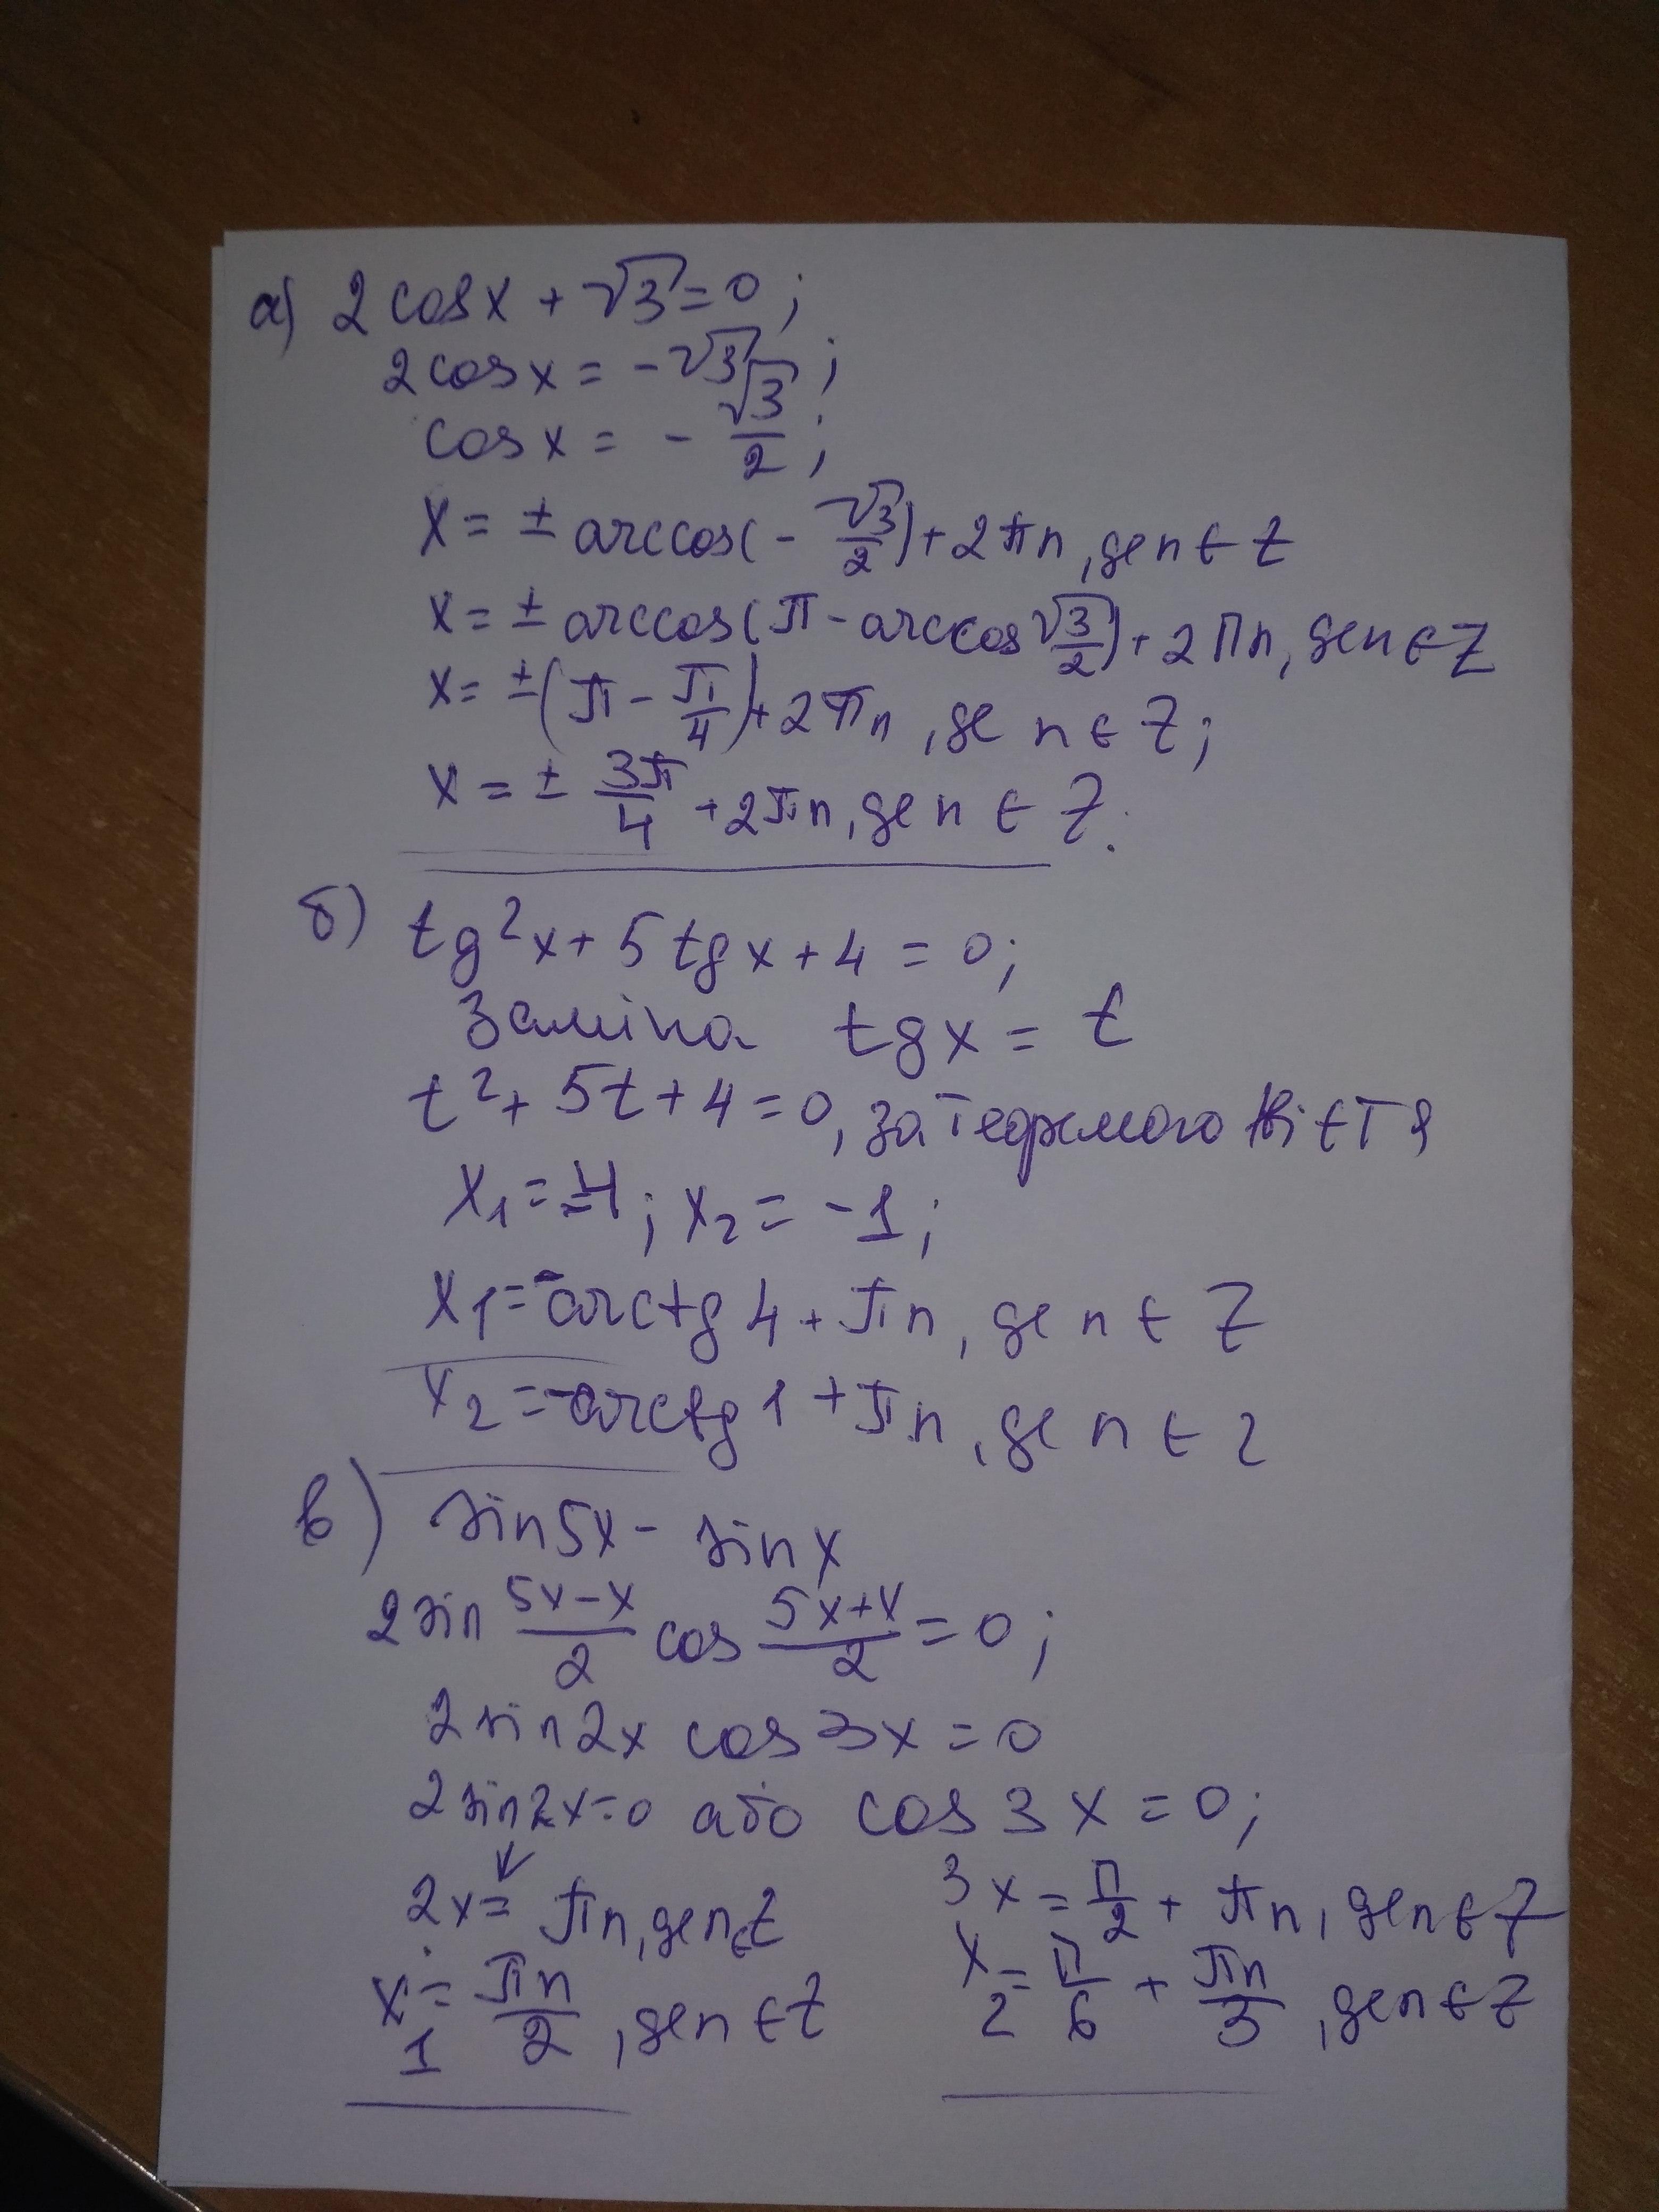 а) 2 cos x + √3 = 0;
2 cos x = -√3;
cos x = - √3/2;
x = ± arccos(- √3/2) + 2πn, де n ∈ Z
x = ± arccos(π - arccos √3/2) + 2πn, де n ∈ Z
x = ±(π - π/4) + 2πn, де n ∈ Z;
x = ± 3π/4 + 2πn, де n ∈ Z.
б) tg²x + 5 tg x + 4 = 0;
Заміна tg x = t
t² + 5t + 4 = 0, за теоремою Вієтя
x₁ = -4; x₂ = -1;
x₁ = -arctg 4 + πn, де n ∈ Z
x₂ = -arctg 1 + πn, де n ∈ Z
в) sin 5x - sin x
2 sin (5x-x)/2 cos (5x+x)/2 = 0;
2 sin 2x cos 3x = 0
2 sin 2x = 0 або cos 3x = 0;
2x = πn, де n ∈ Z 3x = π/2 + πn, де n ∈ Z
x₁ = πn/2, де n ∈ Z x₂ = π/6 + πn/3, де n ∈ Z